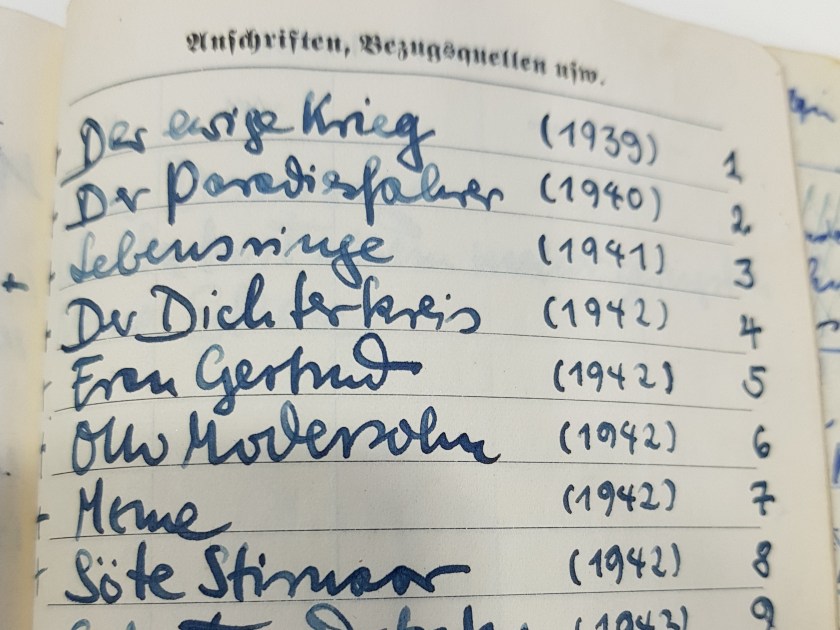 Anschriften, Bezugsquellen usw.
Der ewige Krieg (1939) 1
Der Paradiesfahrer (1940) 2
Lebensringe (1941) 3
Der Dichterkreis (1942) 4
Frau Gertrud (1942) 5
Otto Modersohn (1942) 6
(1942) 7
Söte (1942) 8
(1943) 9